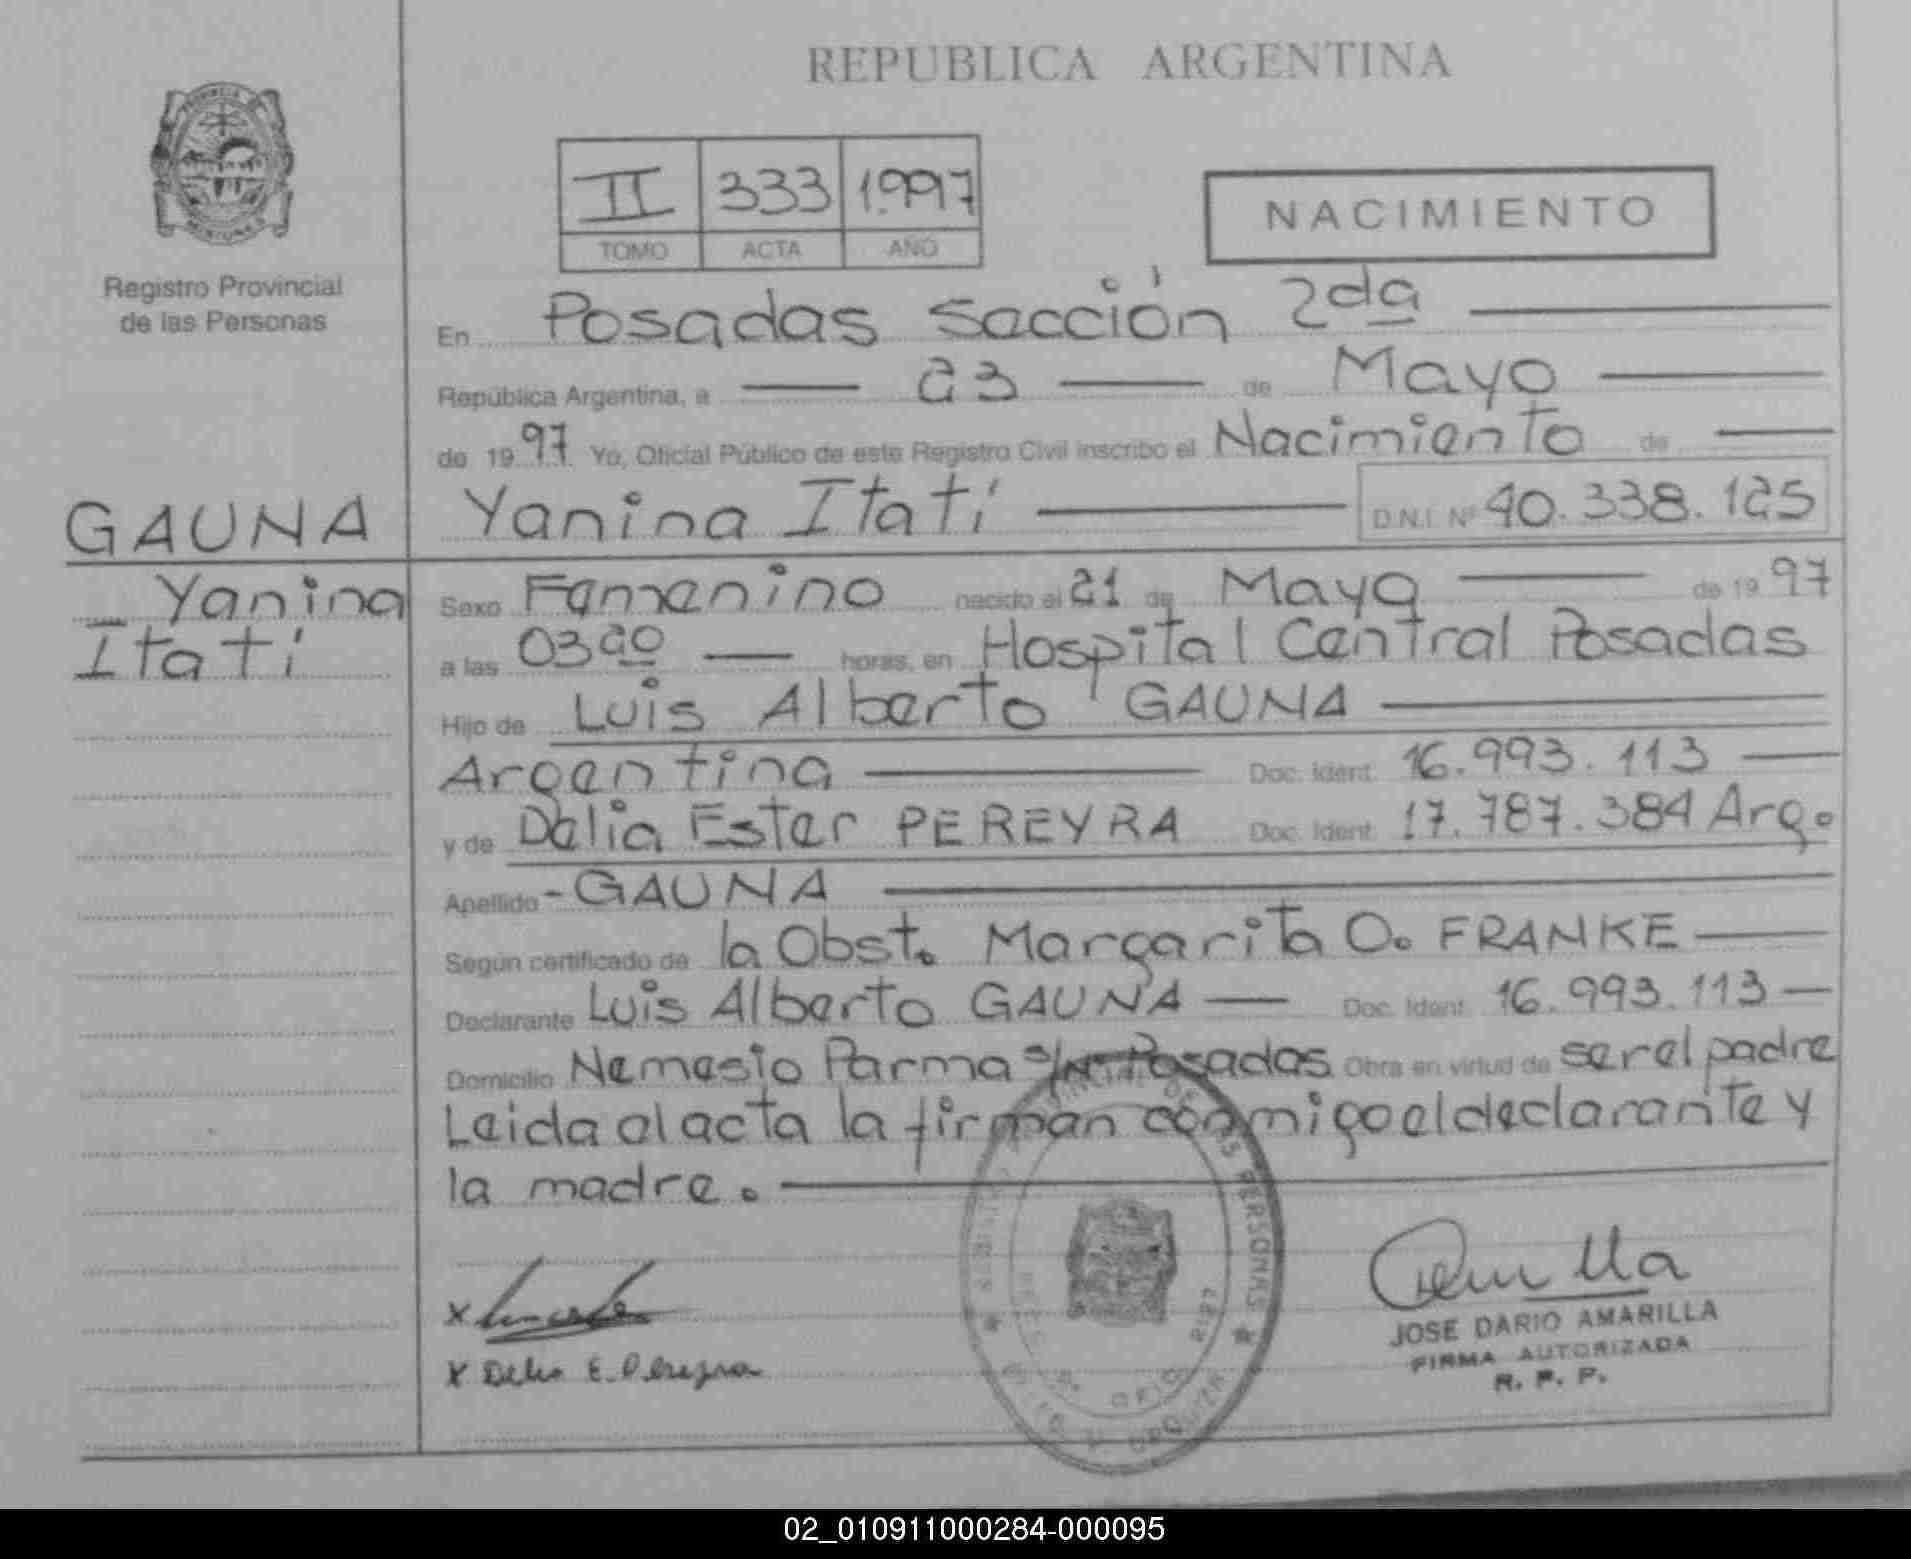 REPUBLICA ARGENTINA
PROVINCIA DE
MISIONES
Registro Provincial
de las Personas
II 333 1.997
TOMO ACTA AÑO
NACIMIENTO
En Posadas Sección 2da
República Argentina, a 23 de Mayo
de 1997 Yo, Oficial Público de este Registro Civil inscribo el Nacimiento de
GAUNA Yanina Itatí D.N.I. Nº 40.338.125
Yanina Sexo Femenino nacido el 21 de Mayo de 1997
Itatí a las 03 20 horas, en Hospital Central Posadas
Hijo de Luis Alberto GAUNA
Argentina Doc. Ident. 16.993.113
y de Delia Ester PEREYRA Doc. Ident. 17.787.384 Arg.
Apellido - GAUNA
Según certificado de la Obst. Margarita O. FRANKE
Declarante Luis Alberto GAUNA Doc. Ident. 16.993.113
Domicilio Nemesio Parma s/nº Posadas Obra en virtud de ser el padre
Leida el acta la firman conmigo el declarante y
la madre.
x
x Delia E. Pereyra
JOSE DARIO AMARILLA
FIRMA AUTORIZADA
R. P. P.
DE LAS PERSONAS
02_010911000284-000095